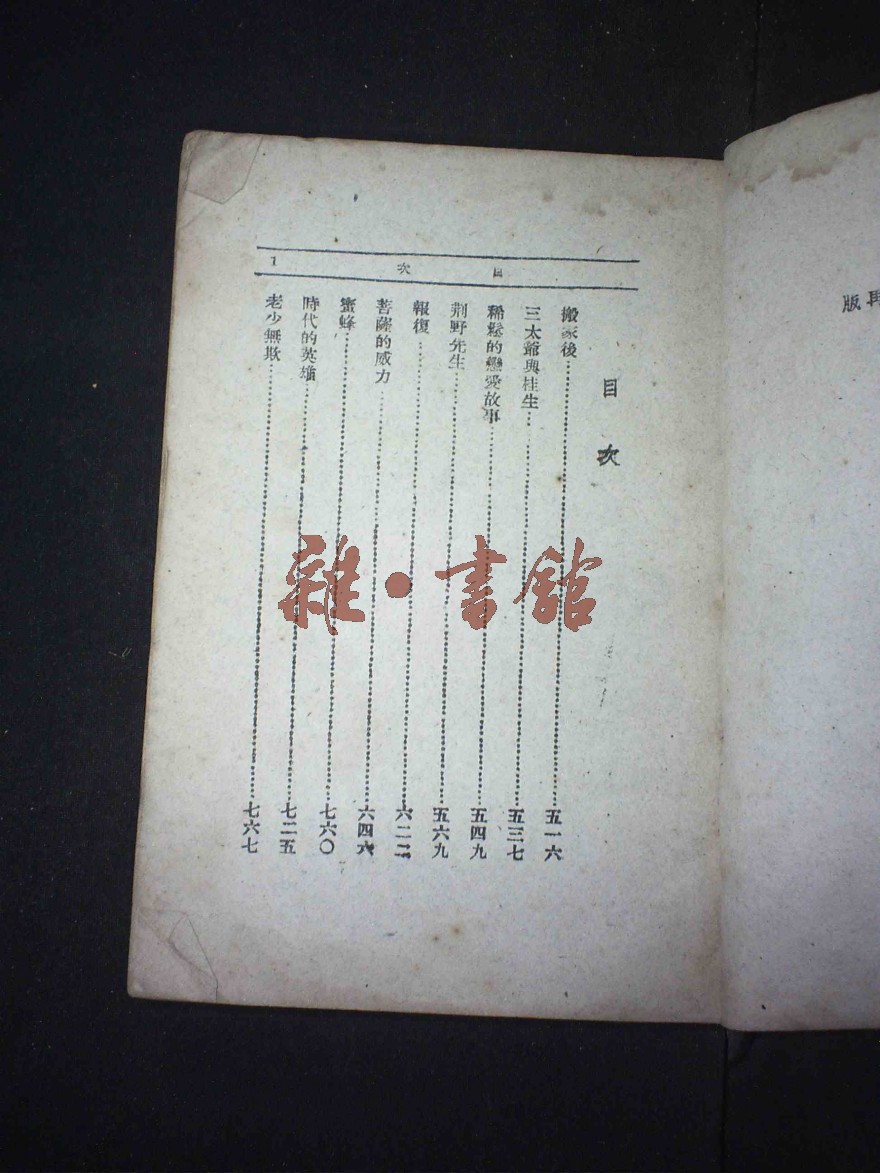 再版
目次
1
目次
搬家後……五一六
三太爺與桂生……五三七
稀鬆的戀愛故事……五四九
荆野先生……五六九
報復……六二二
菩薩的威力……六四六
蜜蜂……七六〇
時代的英雄……七二五
老少無欺……七六七
雜·書館